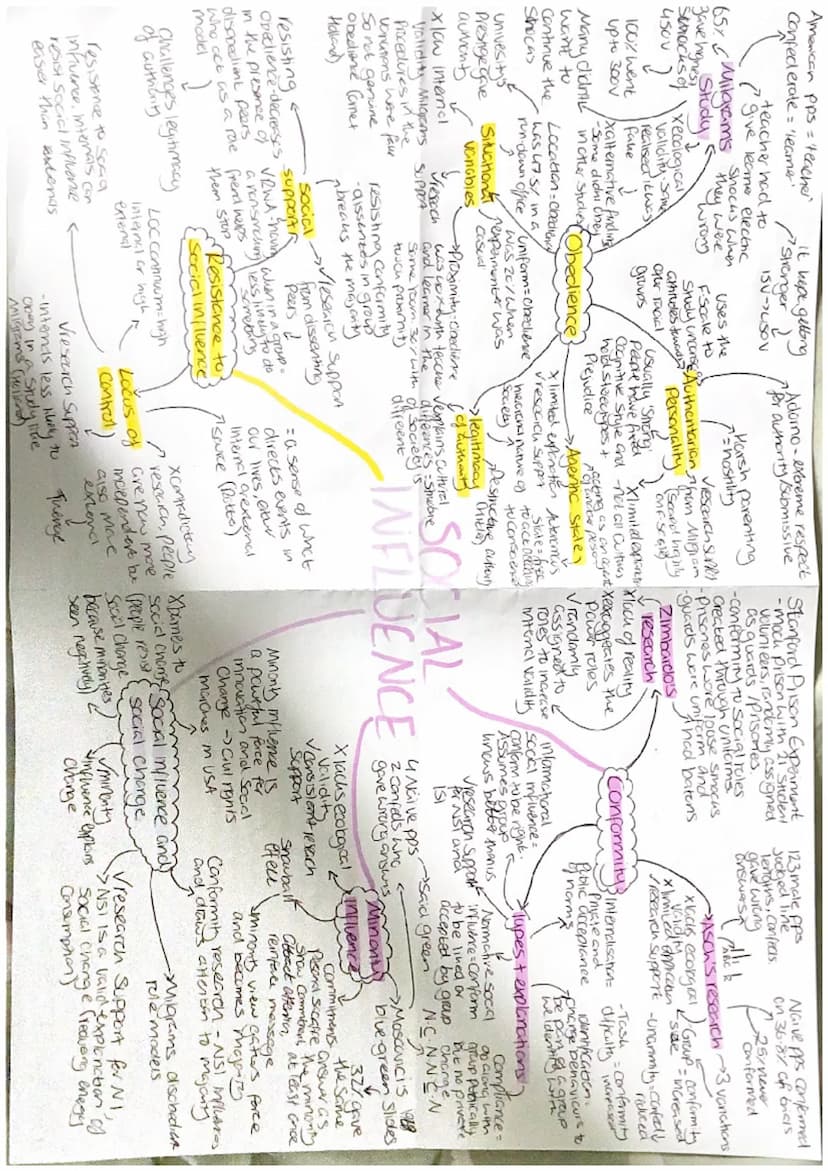 SOCIAL
INFLUENCE
Obedience
Milgrams
Study
American pps = 'teacher'
confederate = 'learner'
teacher had to
give learner electric
shocks when
they were
wrong
it kept getting
stronger
15V → 450V
65% gave highest
shocks of
450V
100% went
up to 300V
Many didn't
want to
continue the
shocks
X ecological
validity, some
realised it was
fake
X alternative findings
some didn't obey
in other studies
Authoritarian
Personality
Adorno = extreme respect
for authority/submissive
Harsh parenting
= hostility
uses the
F scale to
study
attitudes towards
other racial
groups
usually 'strong'
people have fixed
cognitive style and
hold stereotypes +
prejudice
Agentic State
acting as an agent
X limited explanation
√ research support
legitimacy
of authority
Destructive authority
(Hitler)
√ explains cultural
differences = structure
of society is
different
Situational
variables
Location = obedience
was 47.5% in a
run down office
uniform = obedience
was 20% when
experimenter was
casual
Proximity = obedience
was 40% with teacher
and learner in the
same room, 30% with
touch proximity
University
prestige gave
authority
X low internal
validity, Milgrams
procedures in the
variations were fake
so not genuine
obedience (Orne +
Holland)
√ research
support
Resistance to
social influence
Social
support
√ research support
from dissenting
peers
when in a group =
less likely to do
something
resisting conformity
- dissenters in group
breaks the majority
√ RWL, having
a nonsmoking
friend helps
them stop
resisting
obedience decreases
in the presence of
disobedient peers
who act as a role
model
Challenges legitimacy
of authority
Locus of
control
= a sense of what
directs events in
our lives, either
internal or external
source (Rotter)
X contradictory
research, people
are now more
independent but
also more
external
Twenge
√ research support
- Internals less likely to
obey in a study like
Milgrams (Holland)
LOC continuum = high
internal or high
external
Resistance to social
influence, internals can
resist social influence
easier than externals
Conformity
Zimbardo's
research
Stanford Prison Experiment
- mock prison with 21 student
volunteers, randomly assigned
as guards/prisoners.
- conforming to social roles
created through uniforms
- prisoners wore loose smocks
- guards wore uniform and
had batons
X lack of reality
X exaggerates the
power roles
√ randomly
assigned to
roles to increase
internal validity
Asch's research
123 male pps
judged line
lengths, confeds
gave wrong
answers
Naive pps conformed
on 36.8% of trials
25% never
conformed
3 variations
X lacks ecological
validity
X limited application
√ research support
Group = conformity
size increased
- unanimity = conformity
reduced
- Task = conformity
difficulty increased
Types + explanations
Internalisation =
private and
public acceptance
of norms
identification =
change behaviours to
be part of a group
we identify with
Compliance =
go along with
group publically
but no private
change
Normative social
influence = conform
to be liked or
accepted by group
informational
social influence =
conform to be right.
Assumes group
knows better than us
√ research support
for NSI and
ISI
Minority
influence
Moscovici's 1969
blue-green slides
4 naive pps
2 confeds who
gave wrong answers
said green
N C · N N C · N
32% gave
the same
answer as
the minority
at least once
commitment
Personal sacrifice
show commitment
attract attention,
reinforce message
Snowball
effect
minority view gathers force
and becomes majority
X lacks ecological
validity
√ consistent research
support
Social influence and
social change
Minority influence is
a powerful force for
innovation and social
change → civil rights
marches in USA
Conformity research - NSI influences
and draws attention to majority
Milgrams disobedient
role models
√ research support for NI,
NSI is a valid explanation of
social change (reducing energy
consumption)
√ minority
influence explains
change
X barriers to
social change
(people resist
social change
because minorities
seen negatively)